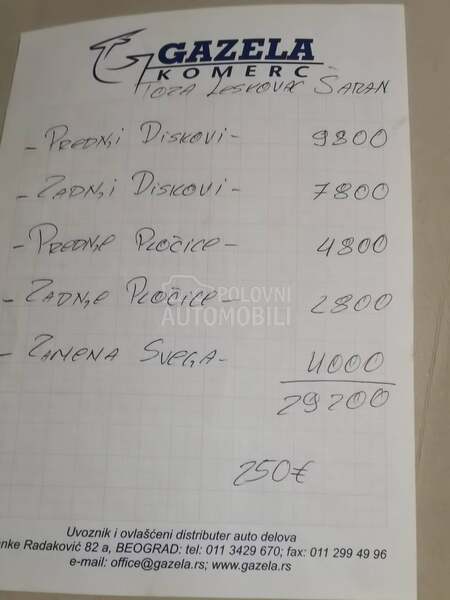 GAZELA
KOMERC
TOZA LESKOVAC ŠARAN
- PREDNJI DISKOVI - 9800
- ZADNJI DISKOVI - 7800
- PREDNJE PLOČICE - 4800
- ZADNJE PLOČICE - 2800
POLOVNI
AUTOMOBILI
- ZAMENA SVEGA - 4000
29200
250€
Uvoznik i ovlašćeni distributer auto delova
nke Radaković 82 a, BEOGRAD: tel: 011 3429 670; fax: 011 299 49 96
e-mail: office@gazela.rs; www.gazela.rs